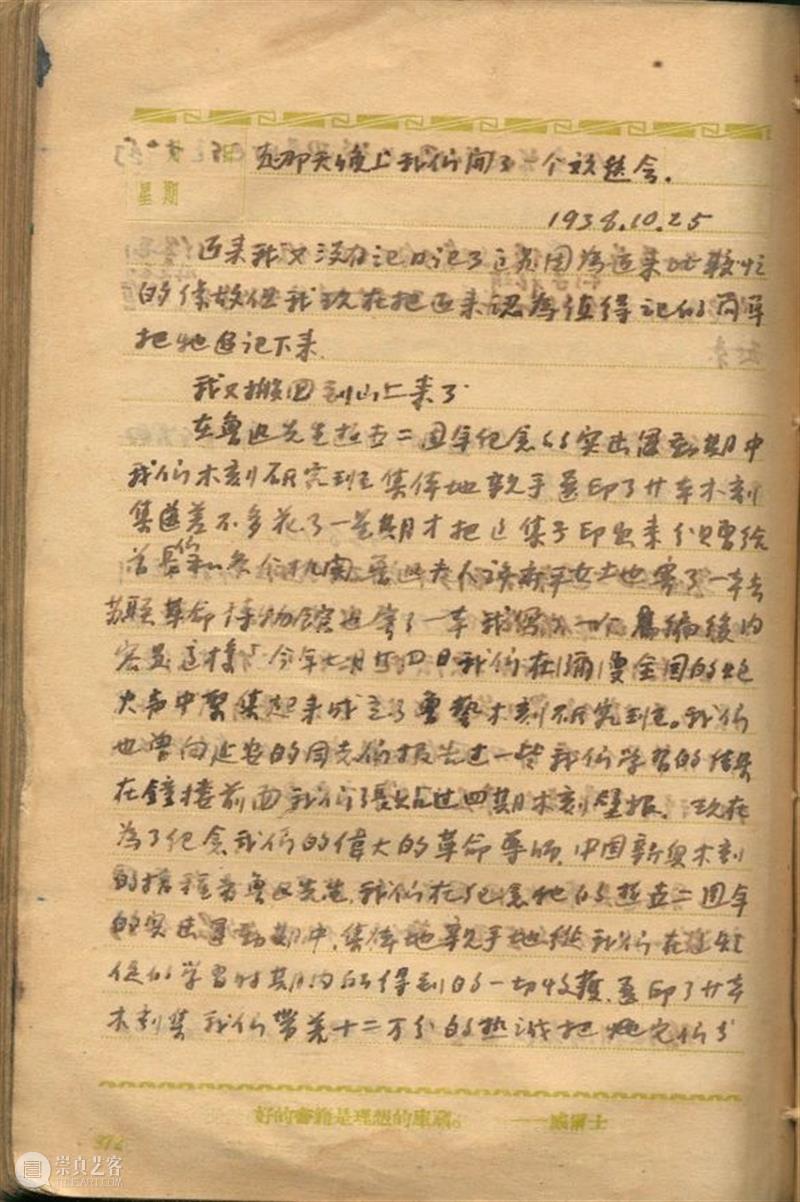 星期
在那天晚上我们开了一个放松会.
1938.10.25
近来我又没有记日记了这是因为近来比较忙
的缘故但我现在把近来认为值得记的简单
把他追记下来.
我又搬回到山上来了
在鲁迅先生逝世二周年纪念的突击运动期中
我们木刻研究班集体地亲手叠印了廿本木刻
集差不多花了一星期才把这集子印出来分赠给
首长们和各个机关鲁迅夫人许广平女士也寄了一本去
苏联革命博物馆也寄了一本我写的一个编后内
容是这样「今年七月廿四日我们在弥漫全国的炮
火声中聚集起来成立了鲁艺木刻研究班。我们
也曾向延安的同志们报告过一些我们学习的结果
在钟楼前面我们张贴过四期木刻壁报. 现在
为了纪念我们的伟大的革命导师,中国新兴木刻
的播种者鲁迅先生,我们在纪念他的逝世二周年
的突击运动期中,集体地亲手地从我们在这短
促的学习时期内所得到的一切收获,叠印了廿本
木刻集我们带着十二万分的热诚把它们分
好的书籍是理想的库藏。 ——威尔士
372
崇真艺客